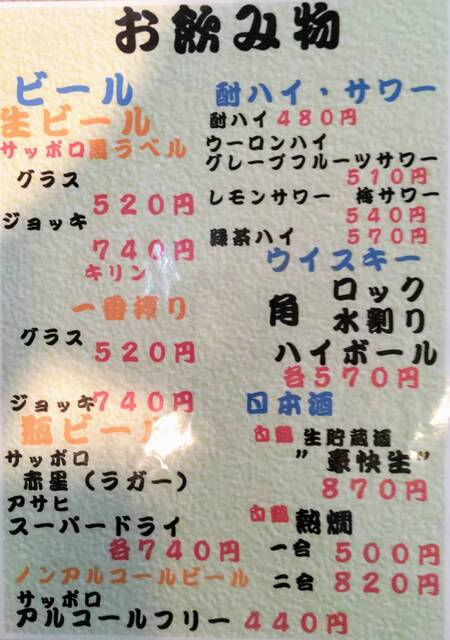 お飲み物
ビール
生ビール
サッポロ黒ラベル
グラス
520円
ジョッキ
740円
キリン
一番搾り
グラス
520円
ジョッキ740円
瓶ビール
サッポロ
赤星（ラガー）
アサヒ
スーパードライ
各740円
ノンアルコールビール
サッポロ
アルコールフリー 440円
酎ハイ・サワー
酎ハイ480円
ウーロンハイ
グレープフルーツサワー
510円
レモンサワー 梅サワー
540円
緑茶ハイ 570円
ウイスキー
角 ロック
水割り
ハイボール
各570円
日本酒
白鶴 生貯蔵酒
”豪快生”
870円
白鶴 熱燗
一合 500円
二合 820円